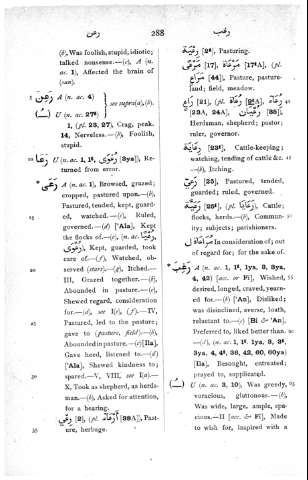 رعن
288
رغب
(b), Was foolish, stupid, idiotic;
talked nonsense.—(c), A (n.
ac. 1), Affected the brain of
(sun).
رَعِنَ A (n. ac. 4)
see supra(a),(b).
(ـُ) U (n. ac. 27ᵏ)
1, (pl. 23, 27), Crag, peak.
14, Nerveless.—(b), Foolish,
stupid.
رَعَا U (n. ac. 1, 1ᵏ, رَعْوَى [3ya]), Re-
turned from error.
رَعَى A (n. ac. 1), Browsed, grazed;
cropped, pastured upon.—(b),
Pastured, tended, kept, guard-
ed, watched.—(c), Ruled,
governed.—(d) ['Ala], Kept
the flocks of.—(e), (n. ac.
Kept, guarded, took
care of.—(f), Watched, ob-
served (stars).—(g), Itched.—
III, Grazed together.—(b),
Abounded in pasture.—(c),
Shewed regard, consideration
for.—(d), see I(c), (f).—IV,
Pastured, led to the pasture;
gave to (pasture, field).—(b),
Abounded in pasture.—(c)[Ila],
Gave heed, listened to.—(d)
['Ala], Shewed kindness to;
spared.—V, VIII, see I(a).—
X, Took as shepherd, as herds-
man.—(b), Asked for attention,
for a hearing.
رِعْي [2], (pl. أَرْعَاء [38A]), Past-
ure, herbage.
[2ᵏ], Pasturing.
مَرْعًى [17], مَرْعَاة [17ᵏA], (pl.
مَرَاعٍ [44]), Pasture, pasture-
land; field, meadow.
رَاعٍ [21], (pl. رُعَاة [25A],
[23A, 24A], رُعْيَان [35]),
Herdsman, shepherd; pastor;
ruler, governor.
رِعَايَة [23ᵏ], Cattle-keeping;
watching, tending of cattle &c.
—(b), Itching.
[25], Pastured, tended,
guarded; ruled, governed.
رَعِيَّة [25ᵏ], (pl. رَعَايَا), Cattle;
flocks, herds.—(b), Commun-
ity; subjects; parishioners.
مُرَاعَاةً لِ In consideration of; out
of regard for; for the sake of.
رَغِبَ A (n. ac. 1, 1ᵏ, 1ya, 3, 3ya,
4, 42) [acc. or Fi], Wished,
desired, longed, craved, yearn-
ed for.—(b) ['An], Disliked;
was disinclined, averse, loath,
reluctant to.—(c) [Bi & 'An],
Preferred to, liked better than.
—(d), (n. ac. 1, 1ᵏ, 1ya, 3, 3ᵏ,
3ya, 4, 4ᵏ, 36, 42, 60, 60ya)
[Ila], Besought, entreated;
prayed to, supplicated.
(ـُ) U (n. ac. 3, 10), Was greedy,
voracious, gluttonous.—(b),
Was wide, large, ample, spa-
cious.—II [acc. & Fi], Made
to wish for, inspired with a